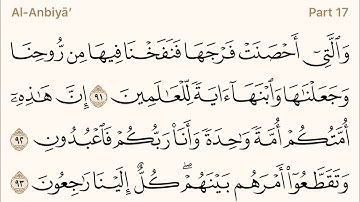 Al-Anbiyā’ Part 17
وَٱلَّتِىٓ أَحْصَنَتْ فَرْجَهَا فَنَفَخْنَا فِيهَا مِن رُّوحِنَا
وَجَعَلْنَٰهَا وَٱبْنَهَآ ءَايَةً لِّلْعَٰلَمِينَ ٩١ إِنَّ هَٰذِهِۦٓ
أُمَّتُكُمْ أُمَّةً وَٰحِدَةً وَأَنَا۠ رَبُّكُمْ فَٱعْبُدُونِ ٩٢
وَتَقَطَّعُوٓا۟ أَمْرَهُم بَيْنَهُمْ ۖ كُلٌّ إِلَيْنَا رَٰجِعُونَ ٩٣